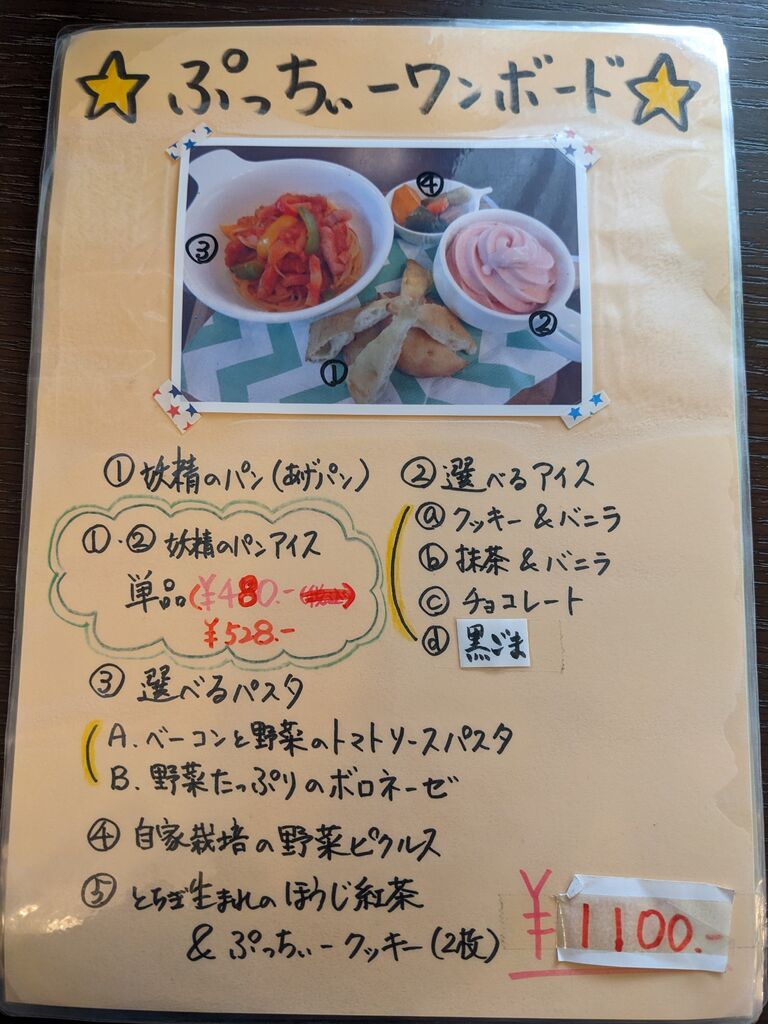 ぷっちぃーワンボード
④
③
②
①
①妖精のパン(あげパン)
①・②妖精のパンアイス
単品(¥480.-
¥528.-
②選べるアイス
ⓐクッキー&バニラ
ⓑ抹茶&バニラ
ⓒチョコレート
ⓓ黒ごま
③選べるパスタ
A.ベーコンと野菜のトマトソースパスタ
B.野菜たっぷりのボロネーゼ
④自家栽培の野菜ピクルス
⑤とちぎ生まれのほうじ紅茶
&ぷっちぃークッキー(2枚)
¥1100.-